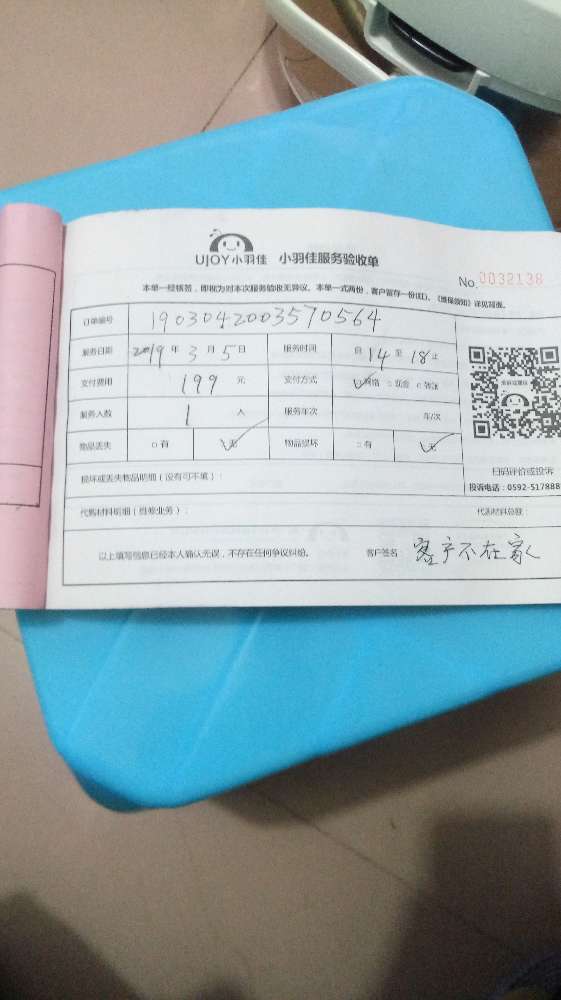 UJOY小羽佳 小羽佳服务验收单
No. 0032138
本单一经核签,即视为对本次服务验收无异议。本单一式两份,客户留存一份(红)。《维保须知》详见背面。
订单编号 1903042003570564
服务日期 2019年3月5日 服务时间 自14至18止
支付费用 199元 支付方式 ☑网络 □现金 □转账
服务人数 1人 服务车次 车/次
物品丢失 □有 ☑无 物品损坏 □有 ☑无
扫码评价或投诉
损坏或丢失物品明细(没有可不填):
投诉电话:0592-517888
代购材料明细(维修业务): 代购材料总额:
以上填写信息已经本人确认无误,不存在任何争议纠纷。 客户签名: 客户不在家